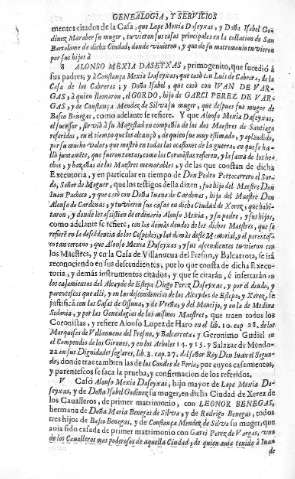 GENEALOGIA, Y SERVICIOS
mentos citados de la Casa, que Lope Mexia Daseyxas, y Doña Isabel Go-
dinez Maraber su muger, tuvieron sus casas principales en la collacion de San
Bartolome de dicha Ciudad, donde vivieron, y que de su matrimonio tuvieron
por sus hijos à
8 ALONSO MEXIA DASEYXAS, primogenito, que sucediò à
sus padres; y à Constança Mexia Daseyxas, que casò con Luis de Cabrera, de la
Casa de los Cabreras; y Doña Isabel, que casò con IVAN DE VAR-
GAS, à quien llamaron, AGORDO, hijo de GARCI PEREZ DE VAR-
GAS, y de Constança Mendez de Silva su muger, que despues fue muger de
Basco Benegas, como adelante se refiere. Y que Alonso Mexia Daseyxas,
el sucessor, sirviò à su Magestad en compañia de los dos Maestres de Santiago
referidos, en el tiempo que les alcançò, de quien fue muy estimado, y aplaudido,
por su mucho valor, que mostrò en todas las ocasiones de la guerra, en que se ha-
llò junto ante, que fueron tantas, como las Coronicas refieren, y la fama de los he-
chos, y hazañas de los Maestres memorados, y de las que constan de dicha
Executoria, y en particular en tiempo de Don Pedro Portocarrero el Sor-
do, Señor de Moguer, que los testigos la dizen, fue hijo del Maestre Don
Iuan Pacheco, y que casò con Doña Iuana de Cardenas, hija del Maestre Don
Alonso de Cardenas; y tuvieron sus casas en dicha Ciudad de Xerez, que habi-
taron, y donde les assistiò de ordinario Alonso Mexia, y su padre, y sus hijos,
como adelante se refiere, en los demàs estados de los dichos Maestres, que se
refiere en la
voto en tercero, que Alonso Mexia Daseyxas, y sus ascendientes tuvieron con
los Maestres, y en la Casa de Villanueva del Fresno, y Balcarrota, se irà
reconociendo en sus descendientes, por lo que consta de dicha Execu-
toria, y demàs instrumentos citados, y que se citaràn, è insertaràn en
los casamientos del Alcayde de Estepa Diego Perez Daseyxas, y por el deudo, y
parentesco que alli, y en las descendencias de los Alcaydes de Estepa, y Xerez, se
justificarà con las Casas de Ossuna, y de Vreña, y del Montijo, y en la de Medina
Sidonia, y por las Genealogias de los mismos Maestres, que traen todos los
Coronistas, y refiere Alonso Lopez de Haro en el lib. 10. cap. 28. de los
Marqueses de Villanueva del Fresno, y Balcarrota, y Geronimo Gudiel en
el Compendio de los Girones, y en los Arboles 14. 9 15. y Salazar de Mendo-
za en sus Dignidades seglares, lib. 3. cap. 27. del señor Rey Don Iuan el Segun-
do, donde trae tambien las de los Condes de Feria, por cuyos casamientos,
y parentescos se saca la prueba, y confirmacion de los referidos.
V Casò Alonso Mexia Daseyxas, hijo mayor de Lope Mexia Da-
seyxas, y de Doña Isabel Godinez su muger, en dicha Ciudad de Xerez de
los Cavalleros, de primer matrimonio, con LEONOR BENEGAS,
hermana de Doña Maria Benegas de Silva, y de Rodrigo Benegas, todos
tres hijos de Basco Benegas, y de Constança Mendez de Silva su muger, que
avia sido casada de primer matrimonio con Garci Perez de Vargas, vno
de los Cavalleros mas poderosos de aquella Ciudad; de quien avia tenido à Iuan
de